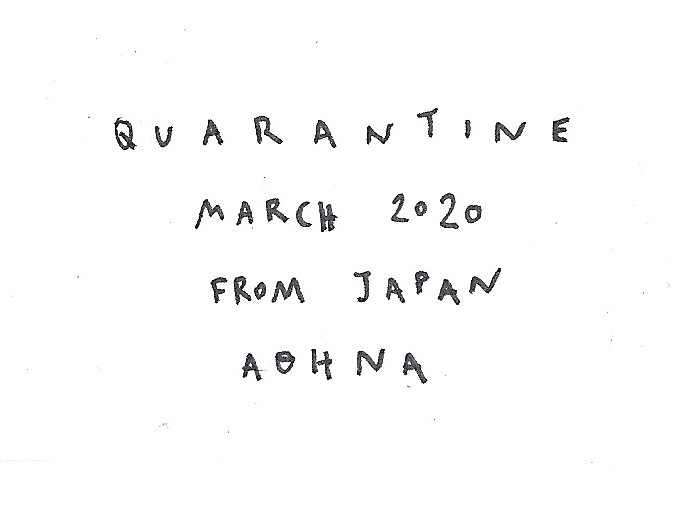 QUARANTINE
MARCH 2020
FROM JAPAN
ΑΘΗΝΑ